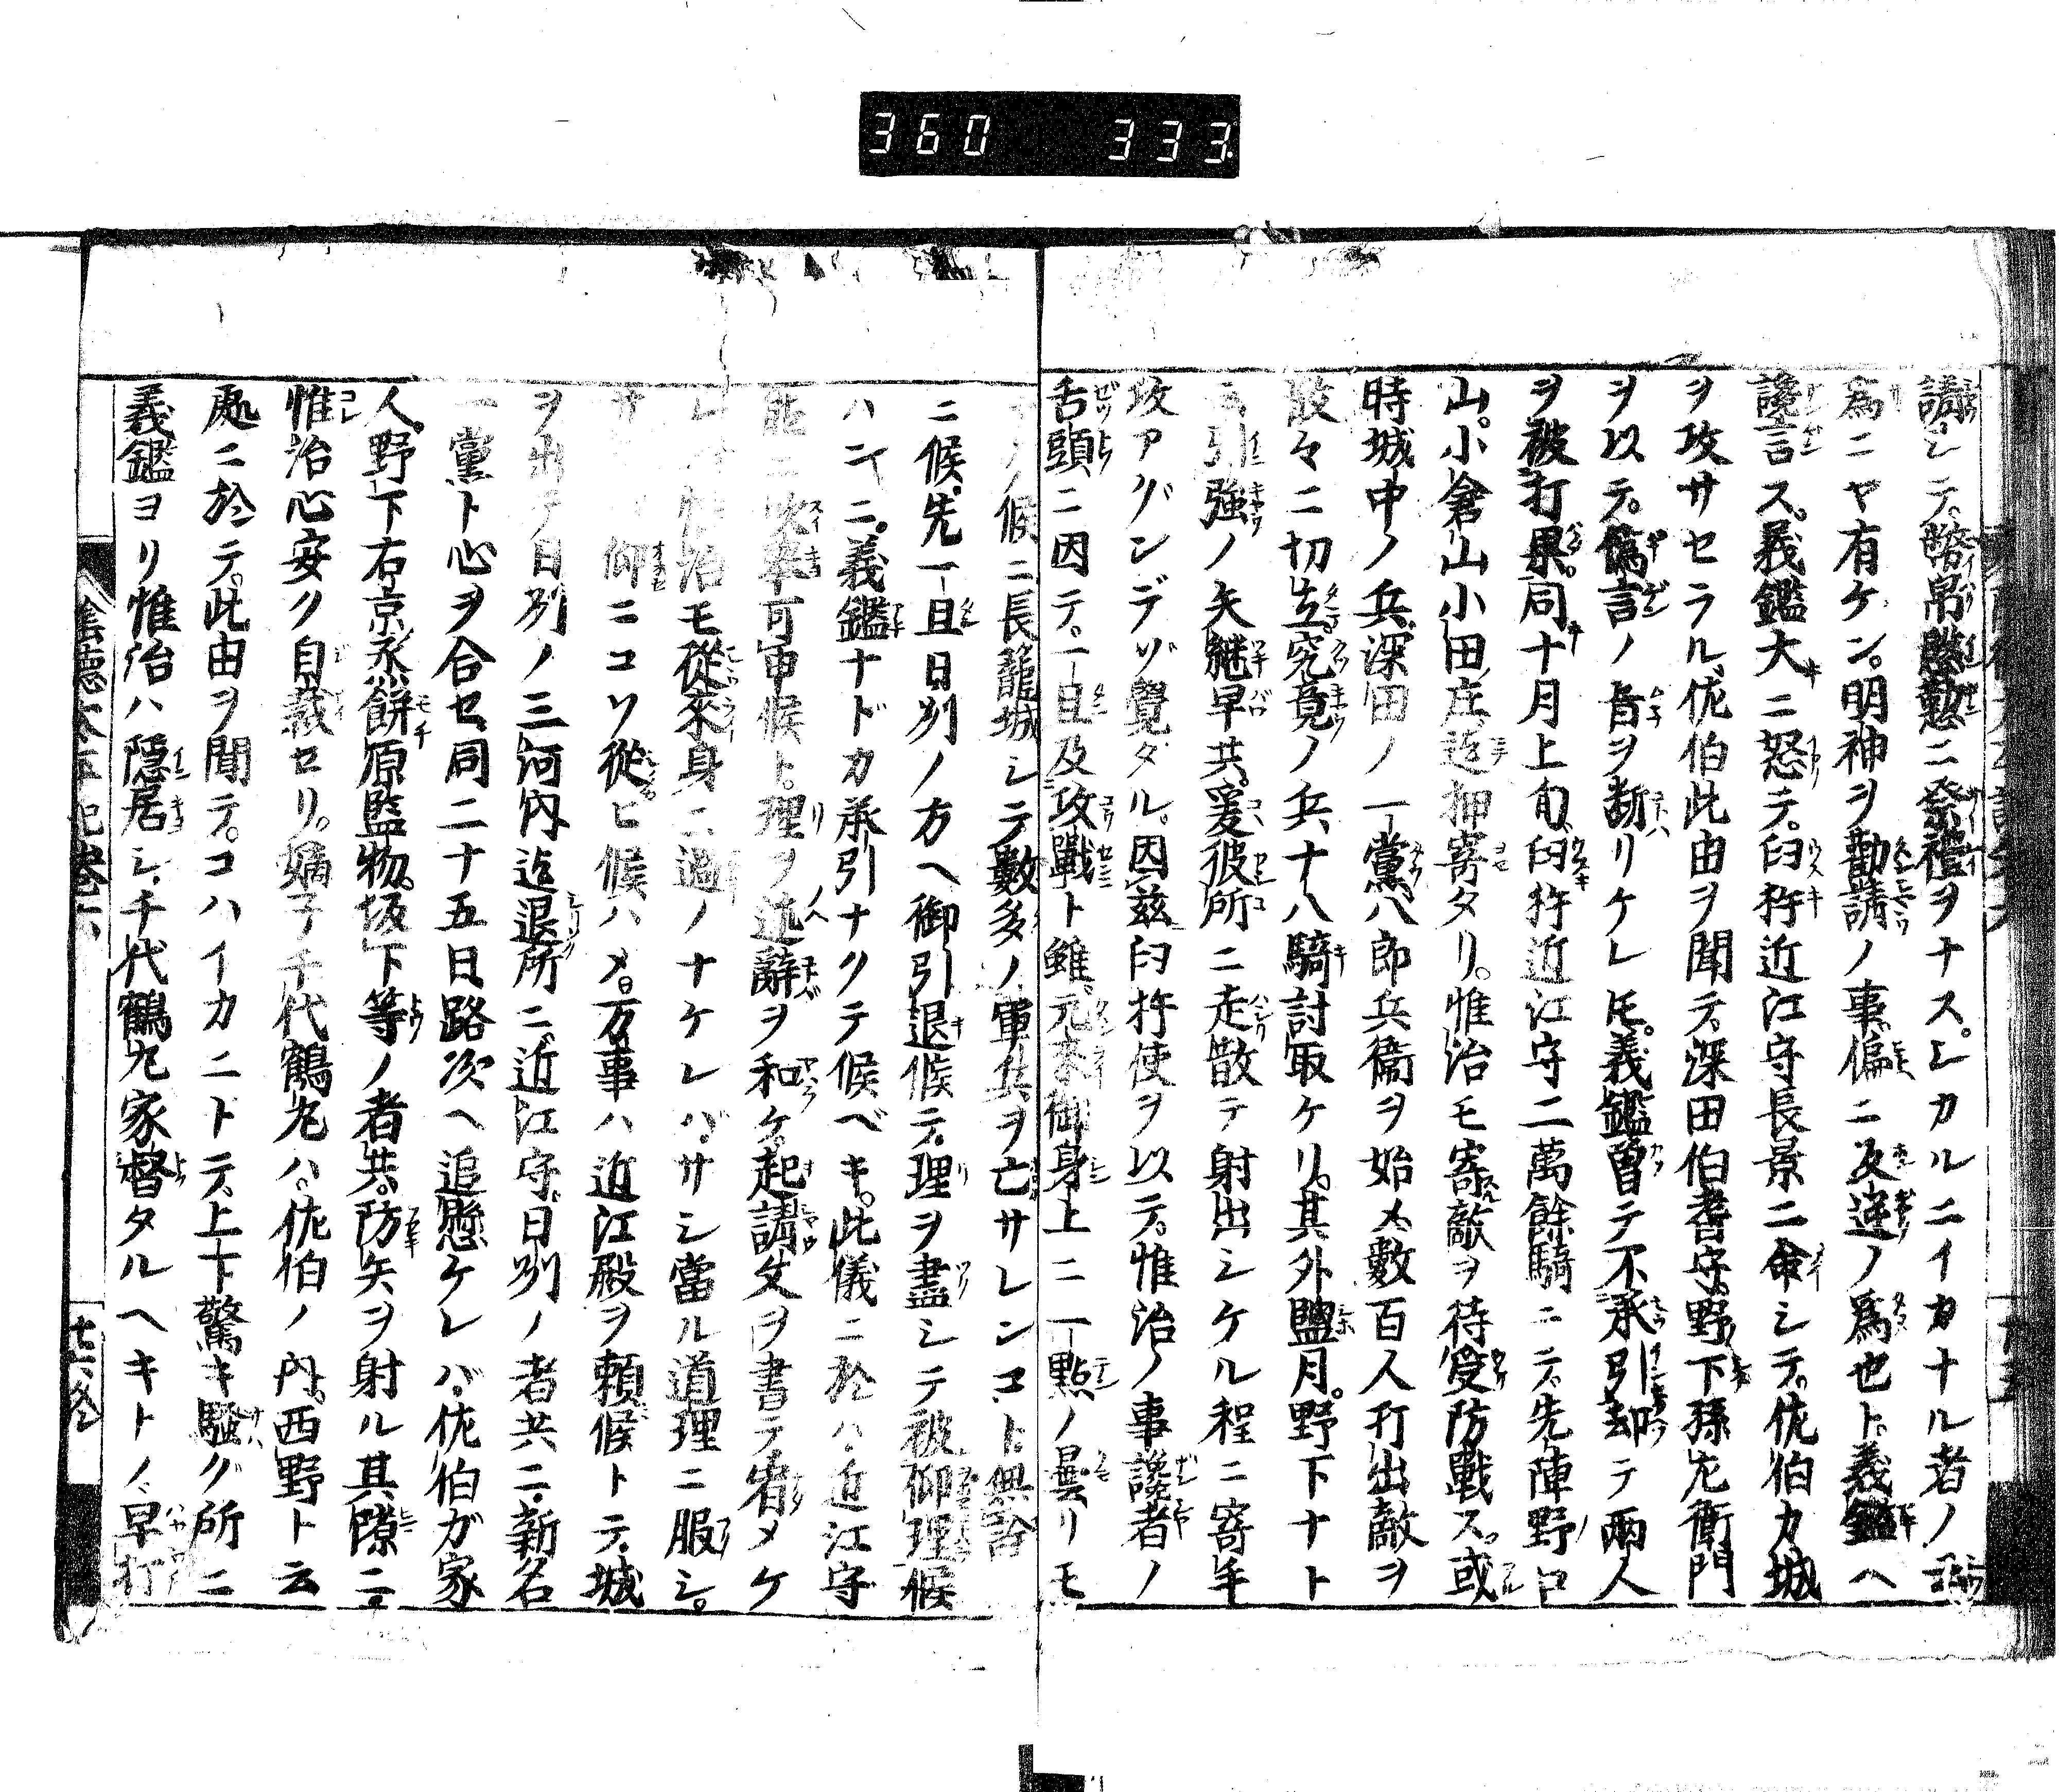 360 333
請シテ。幣帛慇懃ニ祭禮ヲナス。シカルニイカナル者ノ
為ニヤ有ケン。明神ヲ勸請ノ事。偏ニ反逆ノ爲也ト。義鑑ヘ
讒言ス。義鑑大ニ怒テ。臼杵近江守長景ニ命シテ。佐伯カ城
ヲ攻サセラル。佐伯此由ヲ聞テ。深田伯耆守。野下孫左衛門
ヲ以テ。僞言ノ旨ヲ断リケレ𪜈。義鑑曽テ不承引却テ兩人
ヲ被打果。同十月上旬。臼杵近江守二萬餘騎ニテ。先陣野口
山。小倉山小田庄迄押寄タリ。惟治モ寄敵ヲ待受防戰ス。或
時城中ノ兵。深田ノ一黨八郎兵衞ヲ始メ。數百人打出敵ヲ
散々ニ切立。究竟ノ兵十八騎討取ケリ。其外鹽月。野下ナト
云引強ノ矢継早共。爰彼所ニ走散テ射出シケル程ニ寄手
攻アグンデゾ覺タル。因茲臼杵使ヲ以テ。惟治ノ事讒者ノ
舌頭ニ因テ。一旦及攻戰ト雖。元來御身上ニ一點ノ曇リモ
候ニ長籠城シテ數多ノ軍兵ヲ亡サレンコト。無詮
ニ候。先一旦日州ノ方ヘ御引退候テ。理ヲ盡シテ被仰理候
ハンニ。義鑑ナドカ承引ナクテ候ベキ。此儀ニ於ハ。近江守
能ニ吹挙可申候ト。理ヲ述辭ヲ和ケ。起請文ヲ書テ宥メケ
惟治モ從來身ニ過ノナケレバ。サシ當ル道理ニ服シ。
仰ニコソ從ヒ候ハメ。万事ハ近江殿ヲ頼候トテ。城
ヲ出テ日州ノ三河内迄退所ニ。近江守。日州ノ者共ニ。新名
一黨ト心ヲ合セ。同二十五日路次ヘ追懸ケレバ。佐伯ガ家
人。野下右京亟。餅原監物。坂下等ノ者共。防矢ヲ射ル其隙ニ。
惟治心安ク自裁セリ。嫡子千代鶴丸ハ。佐伯ノ内。西野ト云
處ニ於テ。此由ヲ聞テ。コハイカニトテ。上下驚キ騒グ所ニ
義鑑ヨリ惟治ハ隠居シ。千代鶴丸家督タルヘキトノ早打
陰德太平記巻六